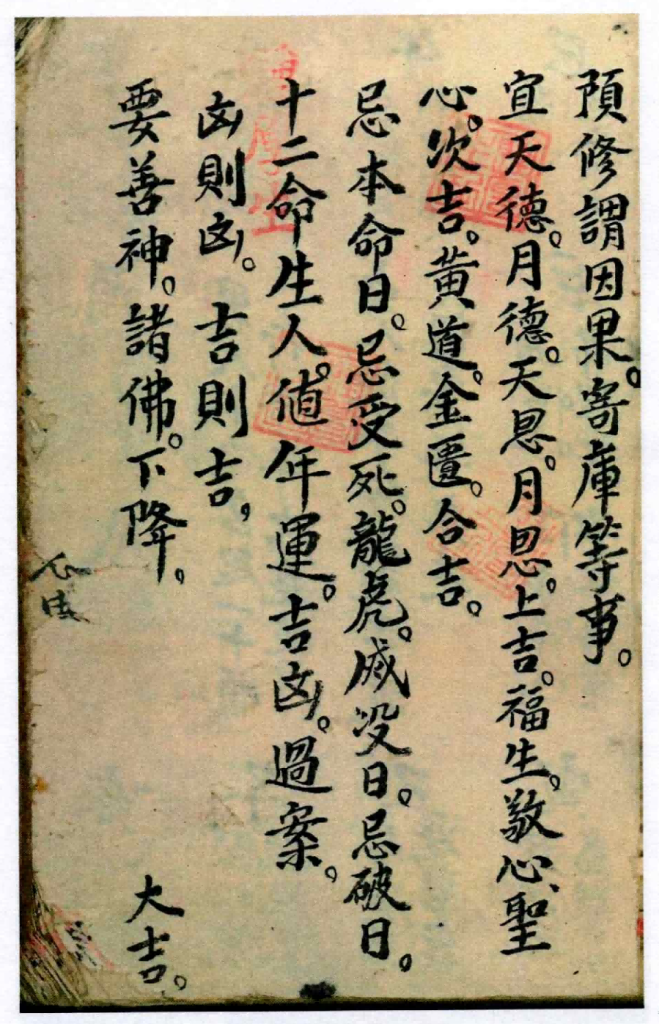 預修謂因果。寄庫等事。
宜天德。月德。天恩。月恩。上吉。福生。敬心、聖
心。次吉。黃道。金匱。合吉。
忌本命日。忌受死。龍虎。滅没日。忌破日。
十二命生人。值年運。吉凶。過案。
凶則凶。吉則吉,
要善神。諸佛。下降。
大吉。